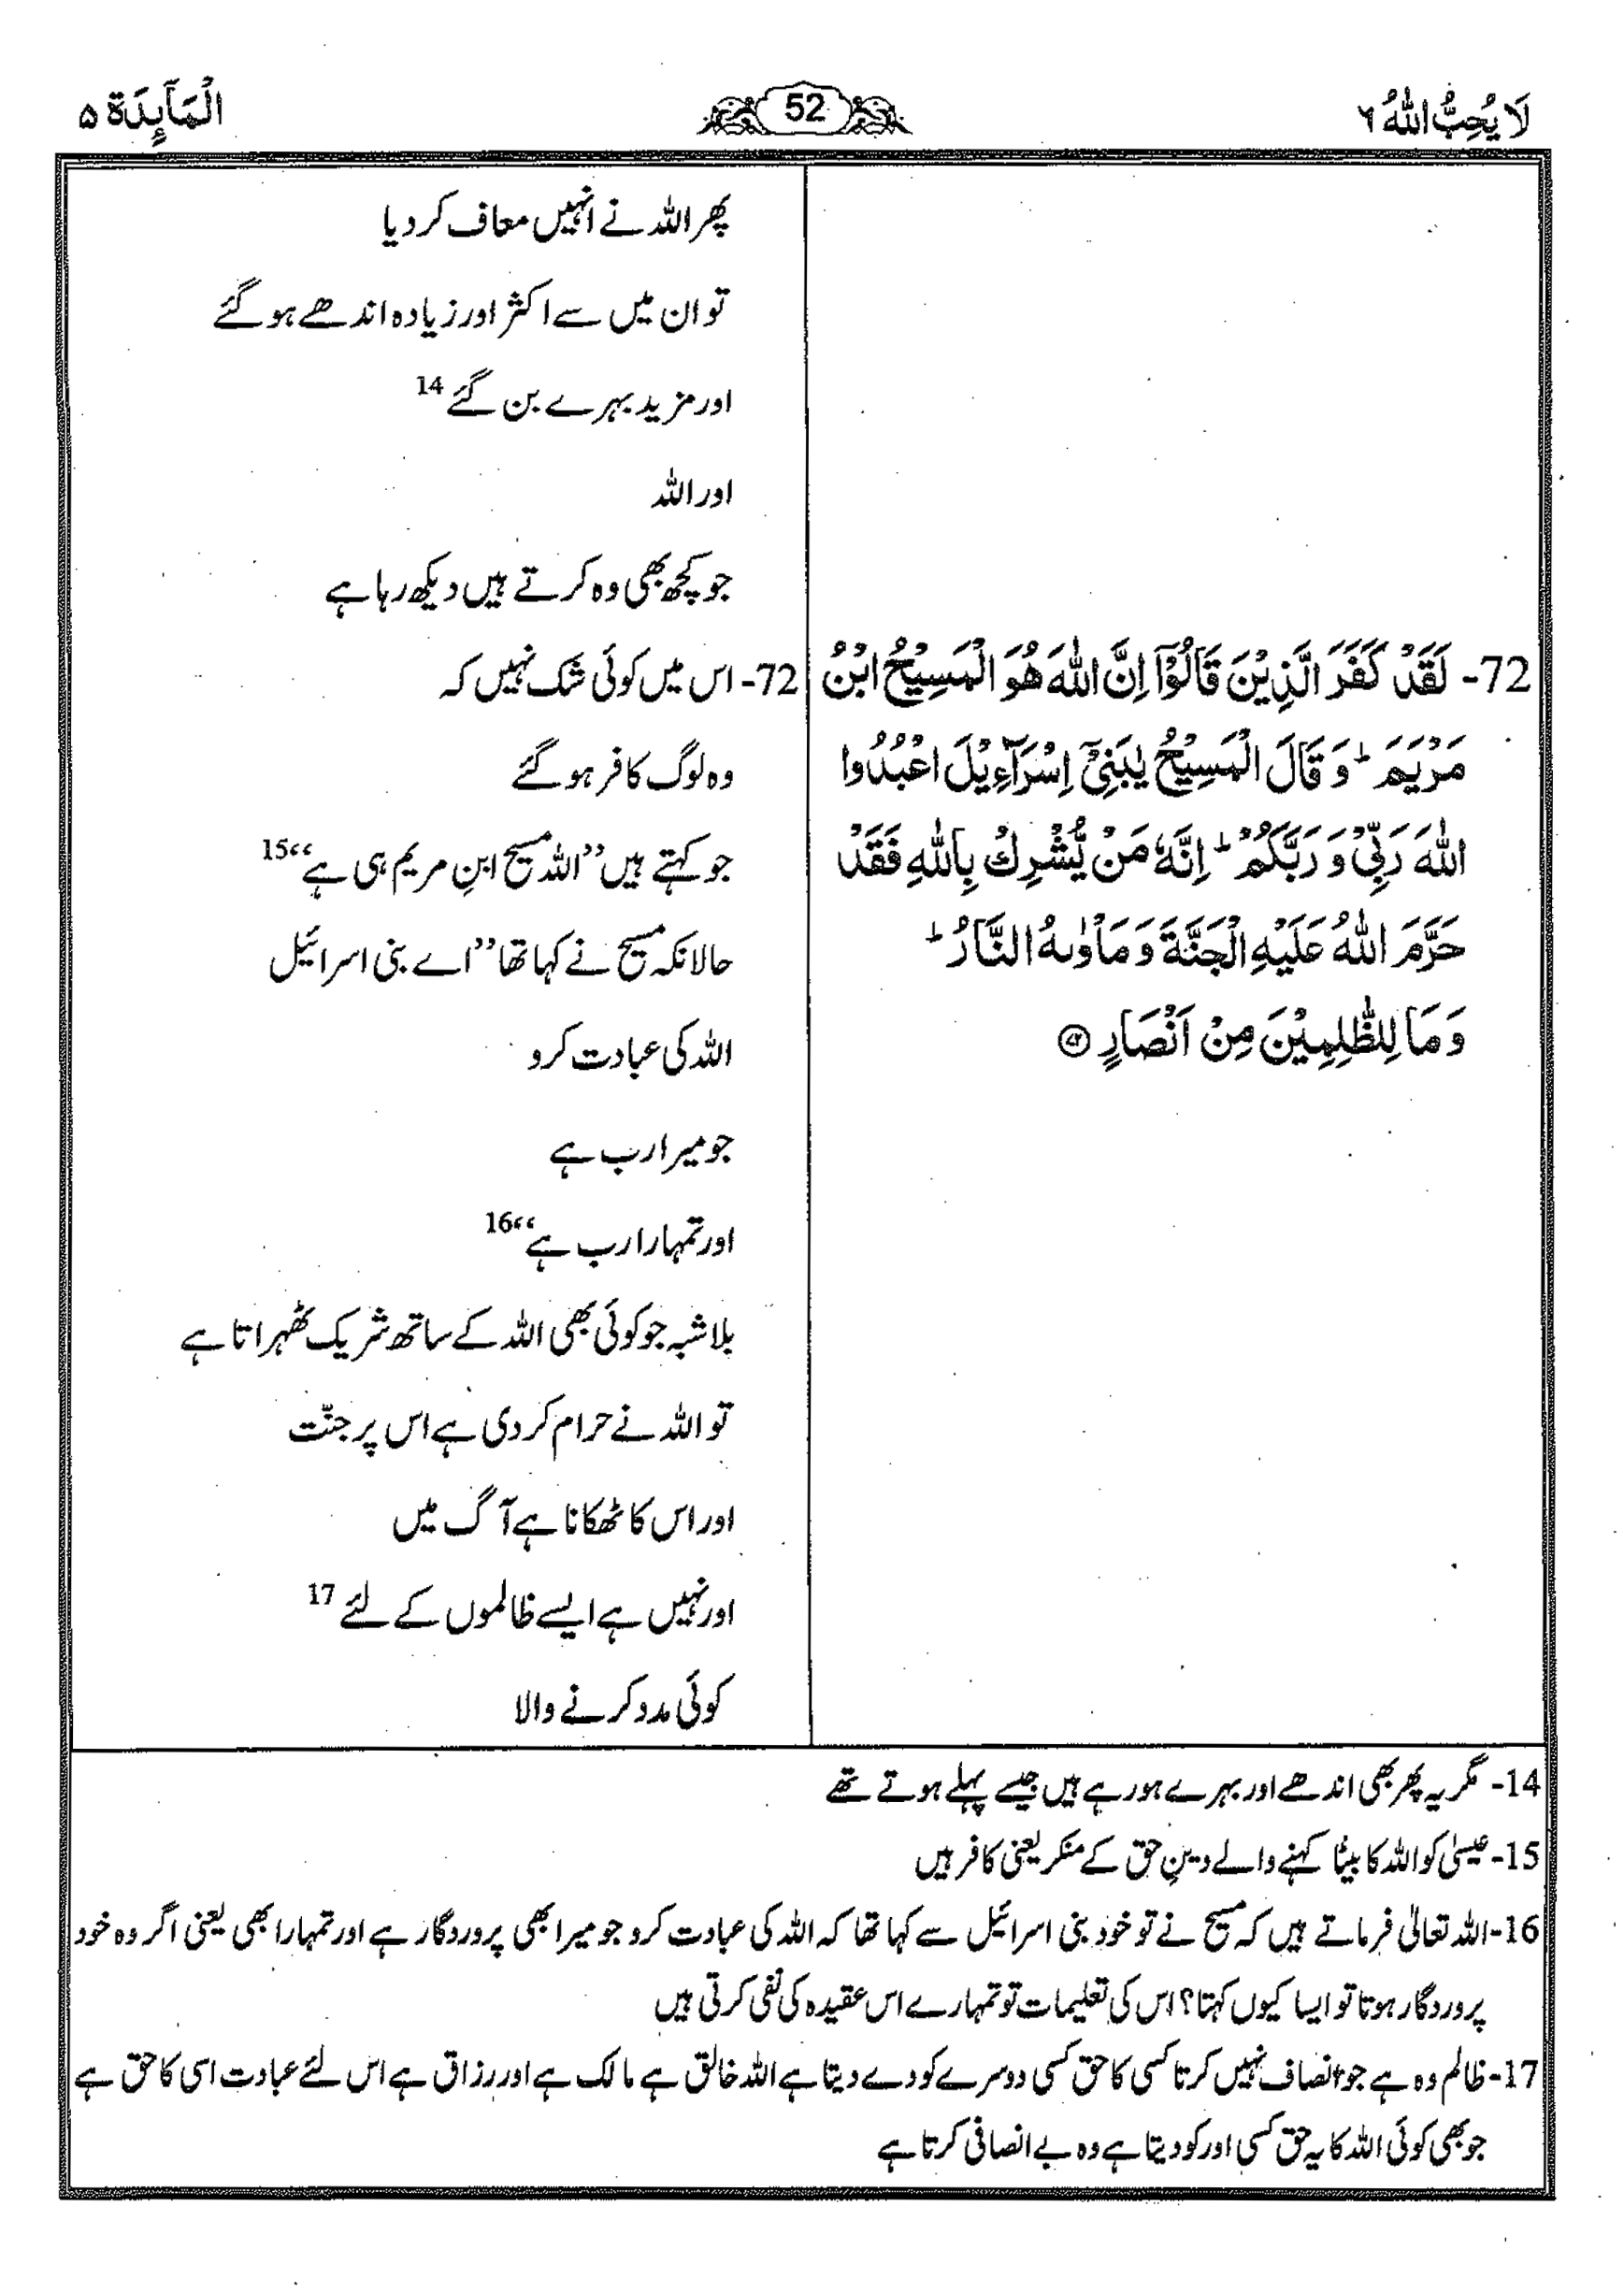 لَا يُحِبُّ اللّٰهُ ۶
52
الْمَآىِٕدَة ۵
پھر اللہ نے انہیں معاف کر دیا
تو ان میں سے اکثر اور زیادہ اندھے ہو گئے
اور مزید بہرے بن گئے 14
اور اللہ
جو کچھ بھی وہ کرتے ہیں دیکھ رہا ہے
72- لَقَدْ كَفَرَ الَّذِيْنَ قَالُوْۤا اِنَّ اللّٰهَ هُوَ الْمَسِيْحُ ابْنُ
مَرْيَمَ ؕ وَ قَالَ الْمَسِيْحُ يٰبَنِيْۤ اِسْرَآءِيْلَ اعْبُدُوا
اللّٰهَ رَبِّيْ وَ رَبَّكُمْ ؕ اِنَّهٗ مَنْ يُّشْرِكْ بِاللّٰهِ فَقَدْ
حَرَّمَ اللّٰهُ عَلَيْهِ الْجَنَّةَ وَ مَاْوٰىهُ النَّارُ ؕ
وَ مَا لِلظّٰلِمِيْنَ مِنْ اَنْصَارٍ ۷۲
72- اس میں کوئی شک نہیں کہ
وہ لوگ کافر ہو گئے
جو کہتے ہیں ’’اللہ مسیح ابنِ مریم ہی ہے‘‘ 15
حالانکہ مسیح نے کہا تھا ’’اے بنی اسرائیل
اللہ کی عبادت کرو
جو میرا رب ہے
اور تمہارا رب ہے‘‘ 16
بلا شبہ جو کوئی بھی اللہ کے ساتھ شریک ٹھہراتا ہے
تو اللہ نے حرام کر دی ہے اس پر جنّت
اور اس کا ٹھکانا ہے آگ میں
اور نہیں ہے ایسے ظالموں کے لئے 17
کوئی مدد کرنے والا
14- مگر یہ پھر بھی اندھے اور بہرے ہو رہے ہیں جیسے پہلے ہوتے تھے
15- عیسیٰ کو اللہ کا بیٹا کہنے والے دینِ حق کے منکر یعنی کافر ہیں
16- اللہ تعالٰی فرماتے ہیں کہ مسیح نے تو خود بنی اسرائیل سے کہا تھا کہ اللہ کی عبادت کرو جو میرا بھی پروردگار ہے اور تمہارا بھی یعنی اگر وہ خود
پروردگار ہوتا تو ایسا کیوں کہتا؟ اس کی تعلیمات تو تمہارے اس عقیدہ کی نفی کرتی ہیں
17- ظالم وہ ہے جو انصاف نہیں کرتا کسی کا حق کسی دوسرے کو دے دیتا ہے اللہ خالق ہے مالک ہے اور رزاق ہے اس لئے عبادت اسی کا حق ہے
جو بھی کوئی اللہ کا یہ حق کسی اور کو دیتا ہے وہ بے انصافی کرتا ہے